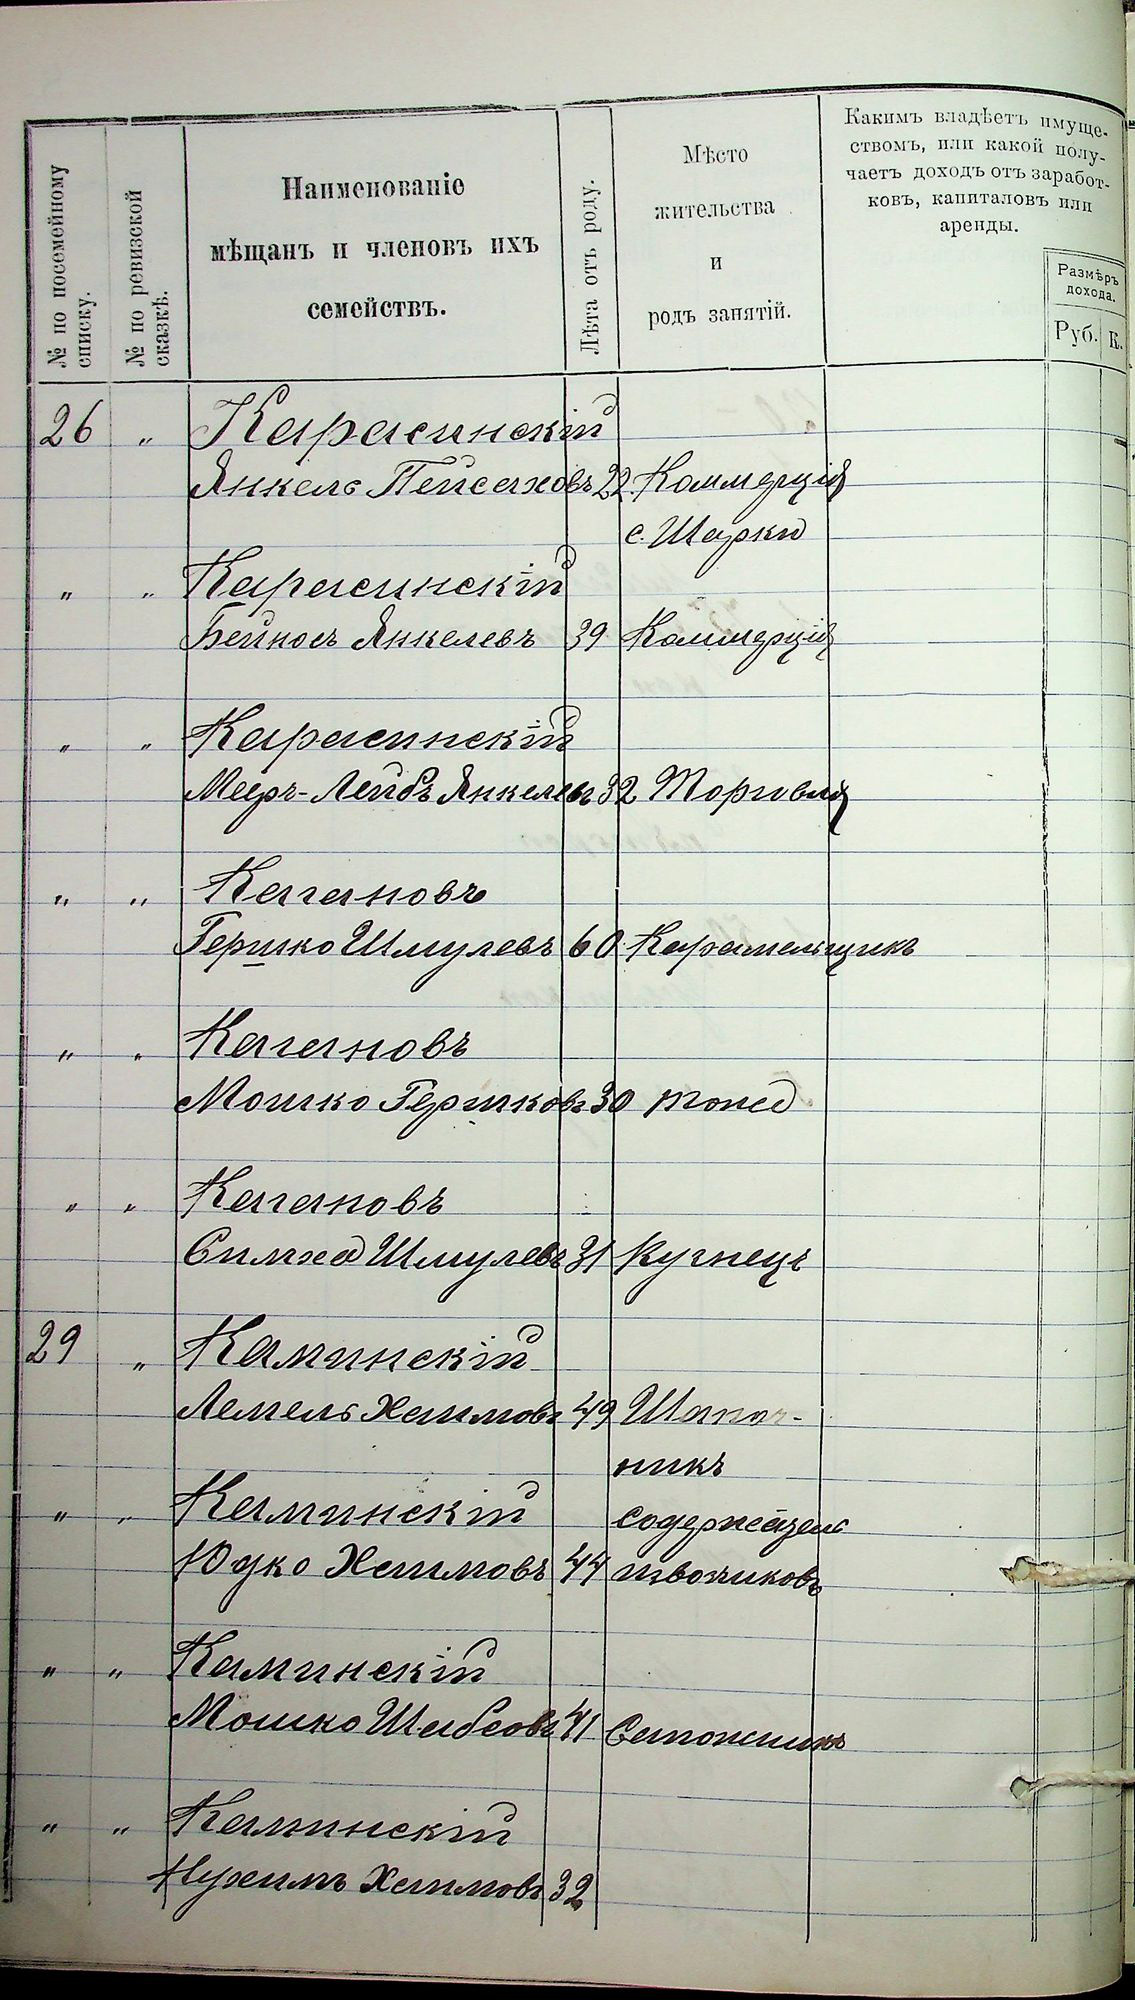 № по посемейному
списку.
№ по ревизской
сказкѣ.
Наименованіе
мѣщанъ и членовъ ихъ
семействъ.
Лѣта отъ роду.
Мѣсто
жительства
и
родъ занятій.
Какимъ владѣетъ имуще-
ствомъ, или какой полу-
чаетъ доходъ отъ заработ-
ковъ, капиталовъ или
аренды.
Размѣръ
дохода.
Руб. К.
26 „ Карасинскій
Янкель Пейсаховъ 22 Коммерція
с. Шарки
„ „ Карасинскій
Бейносъ Янкелевъ 39 Коммерція
„ „ Карасинскій
Меръ-Лейбъ Янкелевъ 32 Торговля
„ „ Кагановъ
Гершко Шмулевъ 60 Карамельщикъ
„ „ Кагановъ
Мошко Гершковъ 30 тоже
„ „ Кагановъ
Симха Шмулевъ 31 Кузнецъ
29 „ Каминскій
Лемель Хаимовъ 49 Шапоч-
никъ
„ „ Каминскій содержатель
Юдко Хаимовъ 44 извозчиковъ
„ „ Каминскій
Мошко Шабсовъ 41 Сапожникъ
„ „ Каминскій
Нухимъ Хаимовъ 32